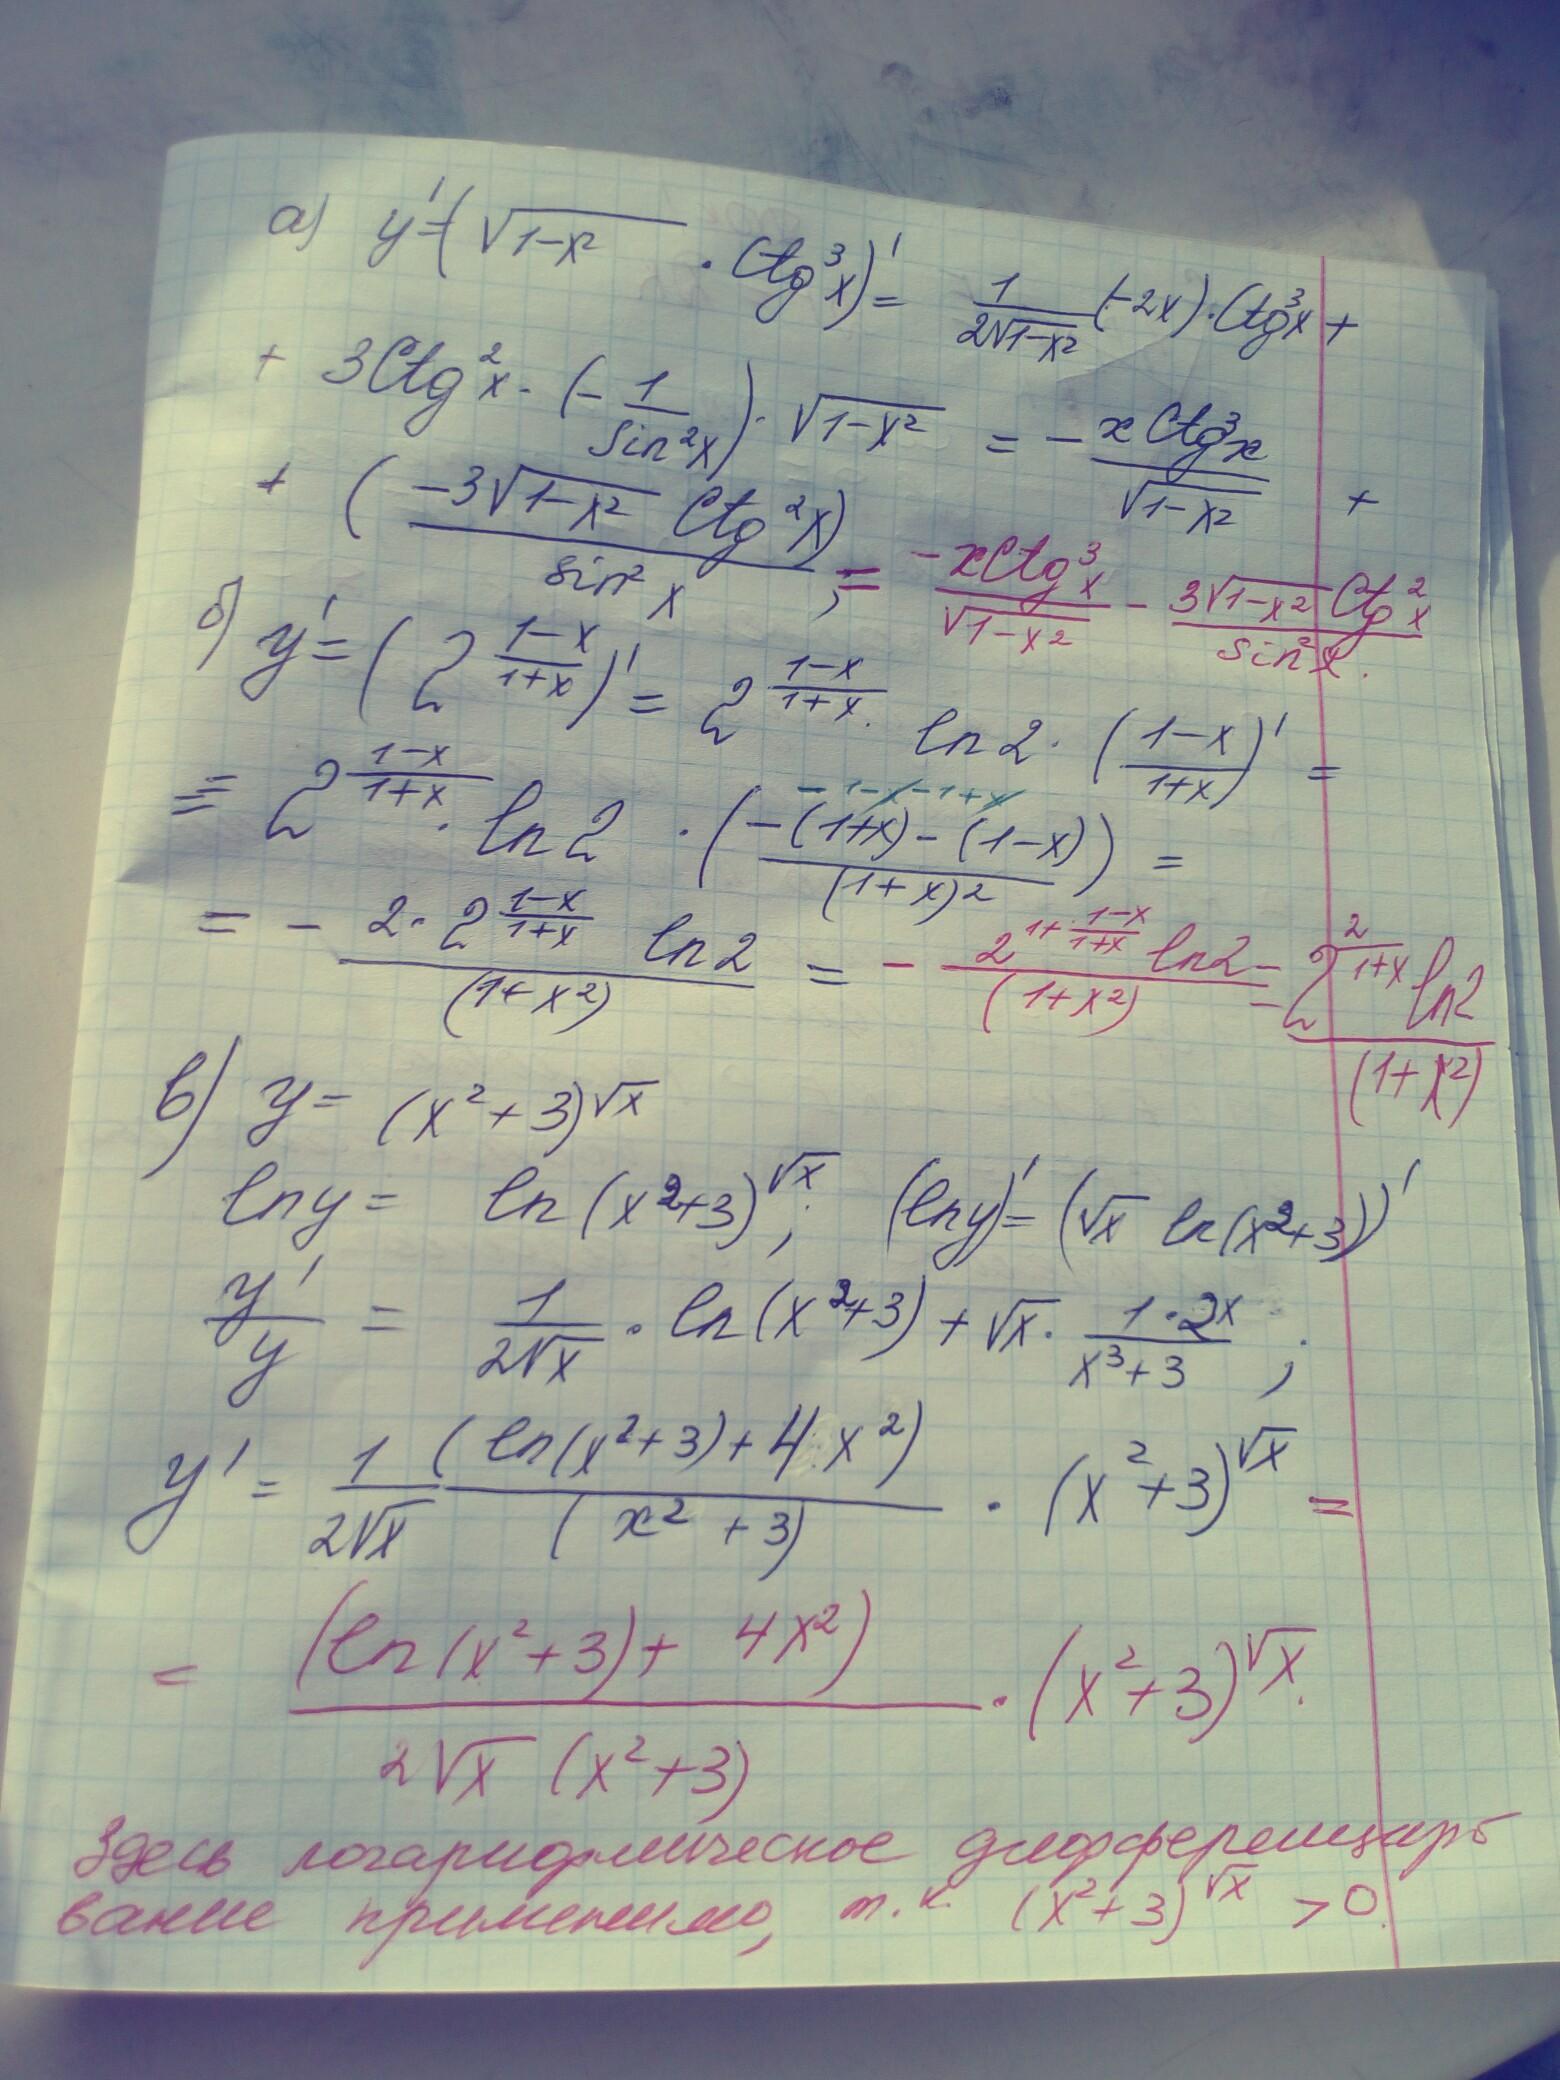 а) y'=(√(1-x²) · Ctg³x)' = 1/(2√(1-x²)) (-2x)·Ctg³x +
+ 3Ctg²x · (-1/sin²x) · √(1-x²) = - xCtg³x/√(1-x²) +
+ (-3√(1-x²) Ctg²x/sin²x); = -xCtg³x/√(1-x²) - 3√(1-x²) Ctg²x/sin²x.
б) y'=(2^((1-x)/(1+x)))' = 2^((1-x)/(1+x)) · ln2 · ((1-x)/(1+x))' =
-1-x-1+x
= 2^((1-x)/(1+x)) · ln2 · ((-(1+x)-(1-x))/(1+x)²) =
= - 2·2^((1-x)/(1+x)) ln2/(1+x²) = - 2^(1+(1-x)/(1+x)) ln2/(1+x²) = - 2^(2/(1+x)) ln2/(1+x²)
в) y= (x²+3)^√x
lny= ln(x²+3)^√x; (lny)'=(√x ln(x²+3))'
y'/y = 1/(2√x) · ln(x²+3) + √x · 1·2x/(x³+3);
y' = 1/(2√x) (ln(x²+3)+4x²)/(x²+3) · (x²+3)^√x =
= (ln(x²+3)+ 4x²)/(2√x (x²+3)) · (x²+3)^√x.
Здесь логарифмическое дифференциро
вание применимо, т.к. (x²+3)^√x > 0.